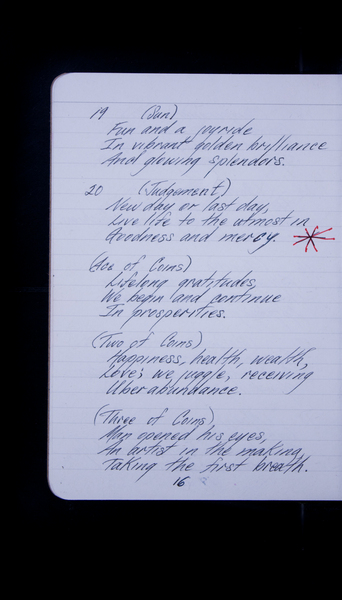 19 (Sun)
Fun and a joyride
In vibrant golden brilliance
And glowing splendors.
20 (Judgement)
New day or last day,
Live life to the utmost in
Goodness and mercy.
(Ace of Coins)
Lifelong gratitudes,
We begin and continue
In prosperities.
(Two of Coins)
Happiness, health, wealth,
Love; we juggle, receiving
Uber abundance.
(Three of Coins)
Man opened his eyes,
An artist in the making,
Taking the first breath.
16